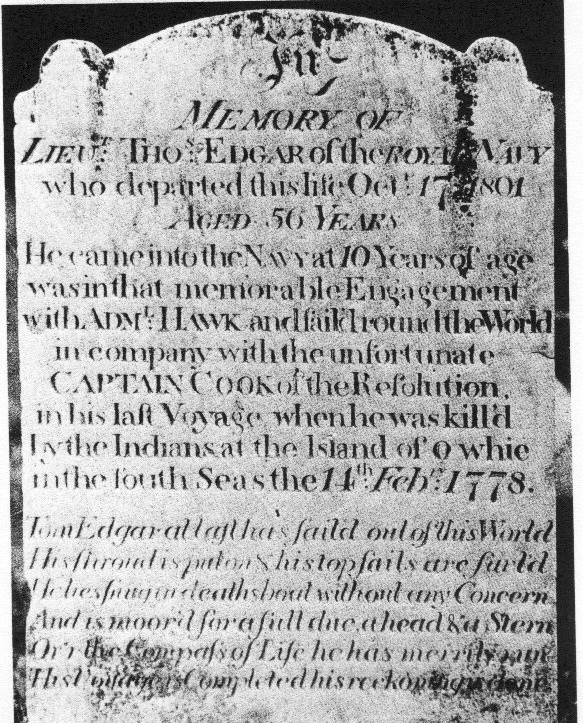 In
MEMORY OF
LIEUT. THOS. EDGAR of the ROYAL NAVY
who departed this life Octr. 17th 1801
AGED 56 YEARS
He came into the NAVY at 10 Years of age
was in that memorable Engagement
with ADML: HAWK and ſail'd round the World
in company with the unfortunate
CAPTAIN COOK of the Reſolution,
in his laſt Voyage when he was kill'd
by the Indians at the Island of O whie
in the ſouth Seas the 14th Febry: 1778.
Tom Edgar at laſt has ſail'd out of this World
His ſhroud is put on & his top ſails are furl'd
He lies ſnug in deaths boat without any Concern
And is moor'd for a full due a head & a Stern
O'r the Compaſs of Life he has merrily run
His Voyage is Completed his reckoning is done